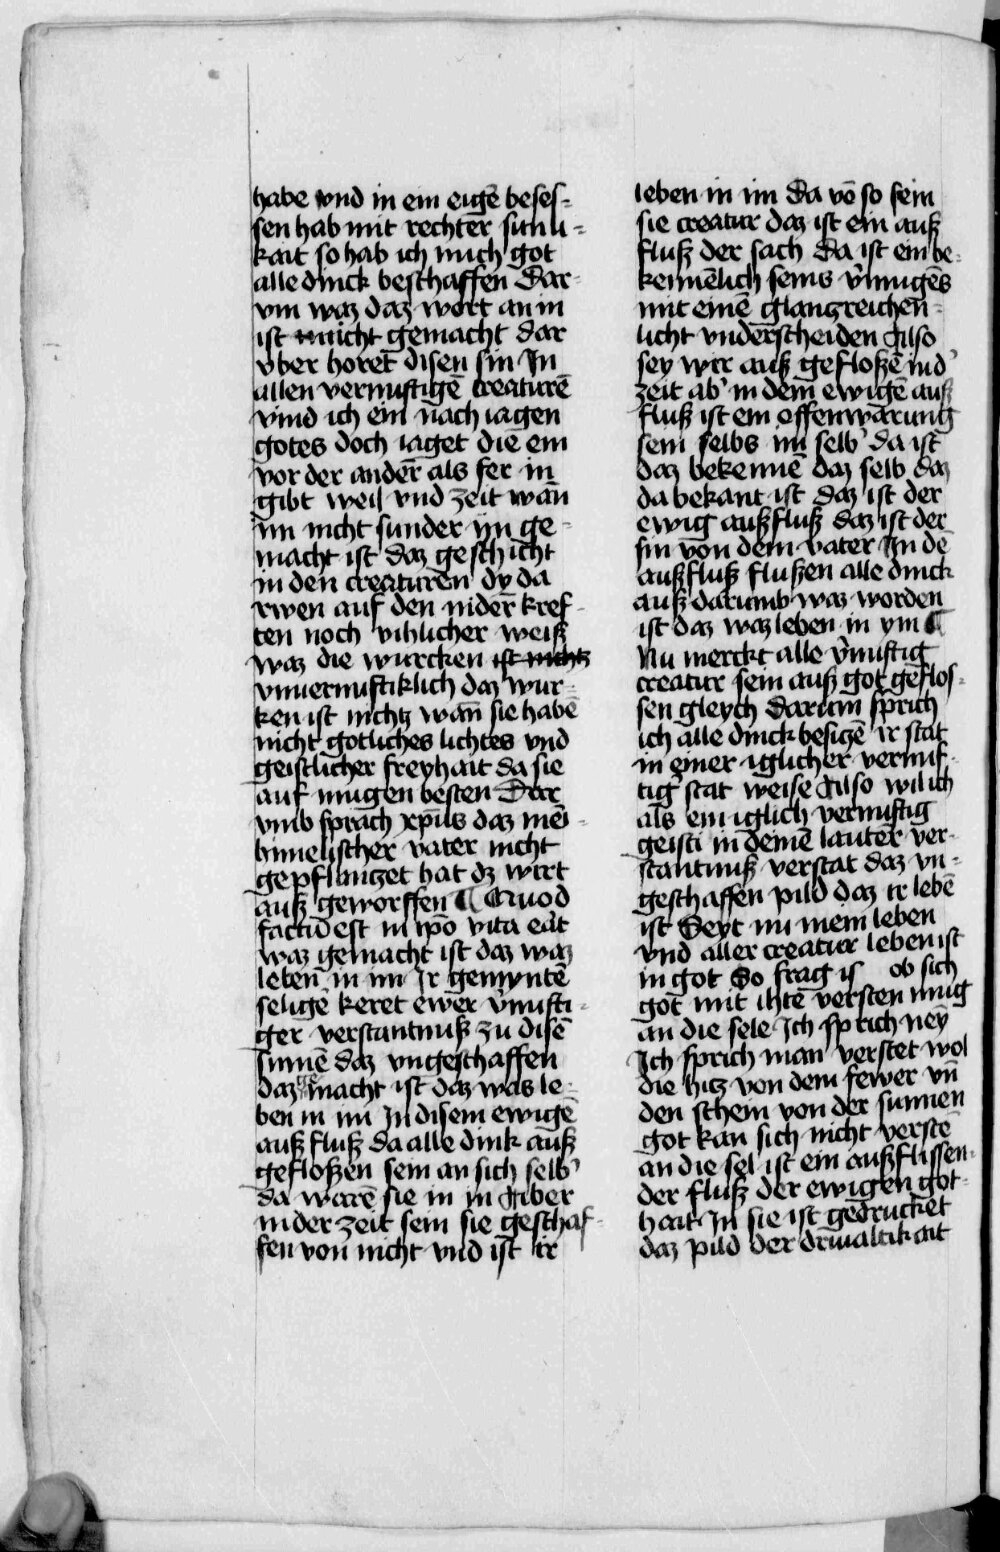 habe vnd in ein eigē beses-
sen hab mit rechter sinli-
kait so hab ich mich got
alle dinck beschaffen Dar-
vm waz daz wort an in
ist nicht gemacht dar
vber horet disen sin In
allen vernuftigē creaturē
vind ich ein nach iagen
gotes doch iaget die ein
vor der ander als fer in
gibt weil vnd zeit wān
im nicht sunder yn ge-
macht ist daz geschicht
in den creaturen dy da
rwen auf den nidern kref-
ten noch vihlicher weiß
waz die wurcken ist nichtz
vnuernuftiklich daz wur-
ken ist nichtz wān sie habē
nicht gotliches lichtes vnd
geistlicher freyhait da sie
auf mugen besten Dar
vmb sprach xp̄us daz mēi
himelischer vater nicht
gepflantzet hat dz wirt
auß geworffen ¶ Quod
factū est in ip̄o vita erāt
waz gemacht ist daz waz
leben in im Ir gemyntē
seligē keret ewer v̓nufti-
ger verstantnuß zu disē
sinnē daz vngeschaffen
daz gemacht ist daz was le-
ben in im In disem ewigē
auß fluß da alle dink auß
gefloßen sein an sich selb̓
da warē sie in im Aber
in der zeit sein sie geschaf-
fen von nicht vnd ist ir
leben in im Da vō so sein
sie creatur daz ist ein auß
fluß der sach Da ist ein be-
kennēlich seins v̓mugēs
mit einē glanzreichen
licht vnderscheiden Also
sey wir auß gefloßē in d̓
zeit ab̓ in dem ewigē auß
fluß ist ein offenwarung
sein selbs im selb̓ da ist
daz bekennē daz selb daz
da bekant ist daz ist der
ewig außfluß daz ist der
sin von dem vater In dē
außfluß flußen alle dinck
auß darumb waz worden
ist daz waz leben in ym ¶
Nu merckt alle v̓nuftig
creatur sein auß got geflos-
sen gleych Darum sprich
ich alle dinck besiczē ir stat
in einer iglicher vernuf-
tig stat weise Also wil ich
als ein iglich vernuftig
geist in deinē lauter ver-
stantnuß verstat daz vn-
geschaffen pild daz ir lebē
ist Seyt nu mein leben
vnd aller creatur leben ist
in got So frag is ob sich
got mit ihtē versten mug
an die sele Ich sprich neȳ
Ich sprich man verstet wol
die hitz von dem fewer vn̄
den schein von der sunnen
got kan sich nicht verstē
an die sel ist ein außflissen-
der fluß der ewigen got-
hait In sie ist gedrucket
daz pild der driualtikait